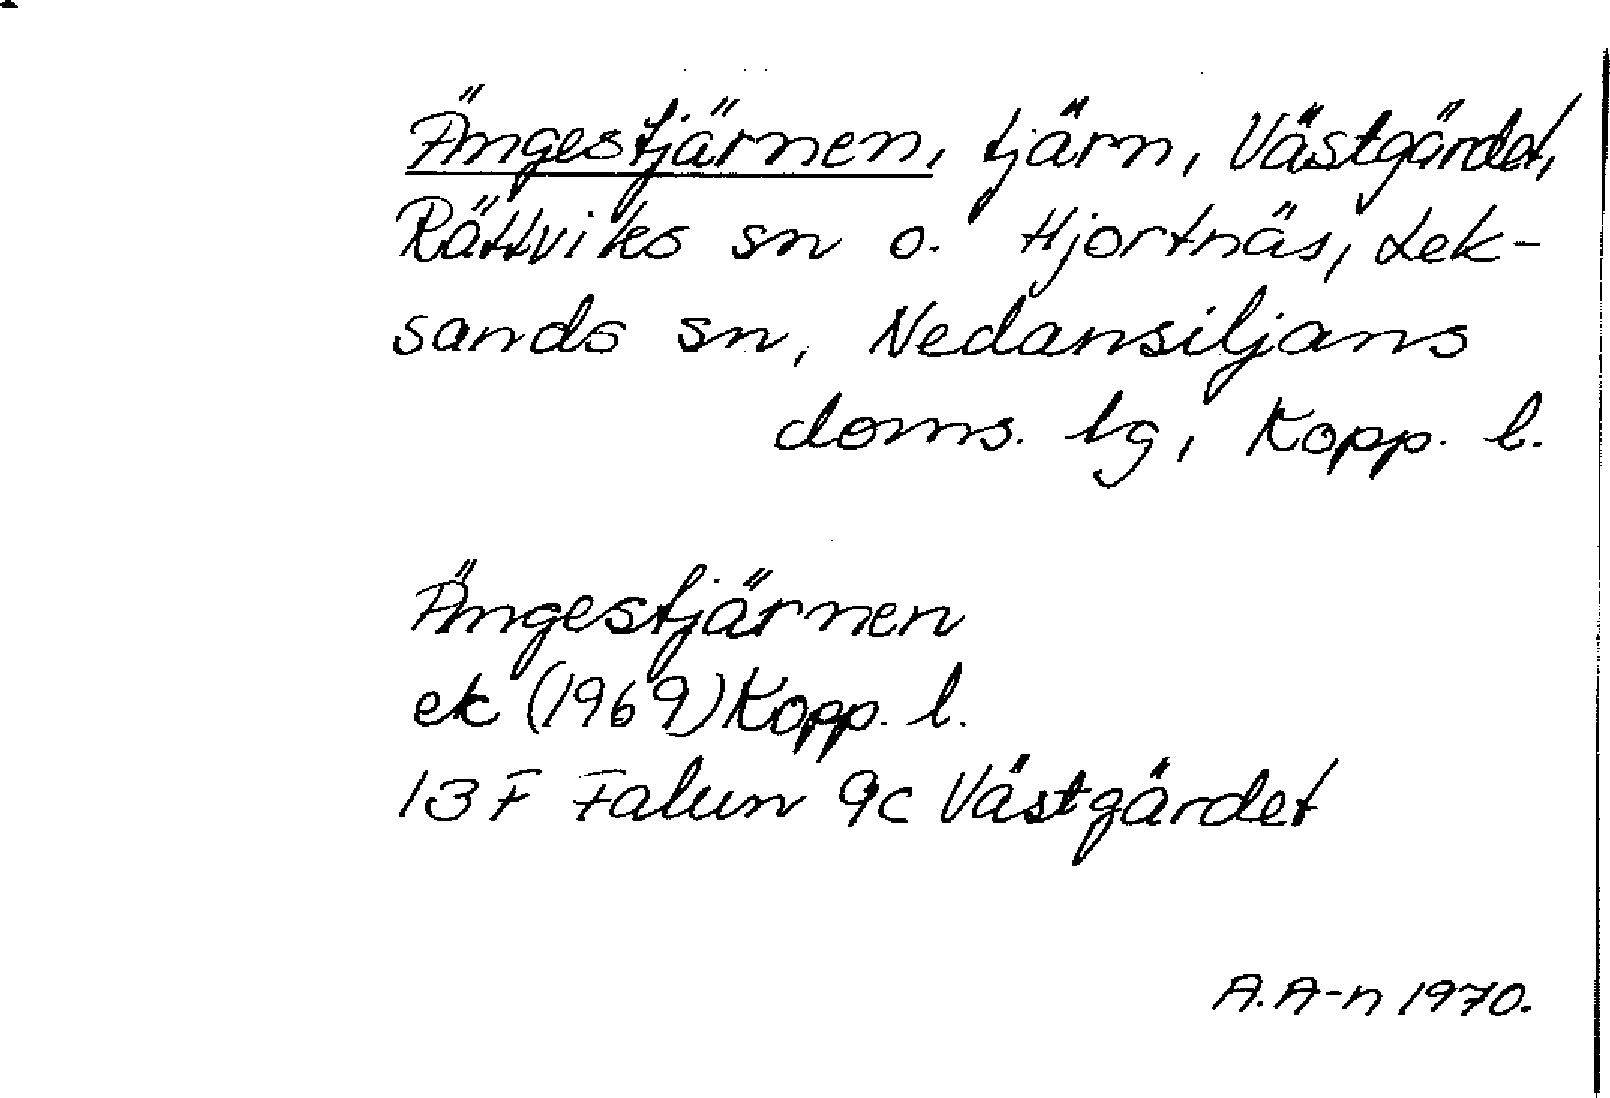 Ängestjärnen, tjärn, Västgärdet,
Rättviks sn o. Hjortnäs, Lek-
sands sn, Nedansiljans
doms. lg, Kopp. l.
Ängestjärnen
ek (1969) Kopp. l.
13 F Falun 9c Västgärdet
A. A-n 1970.